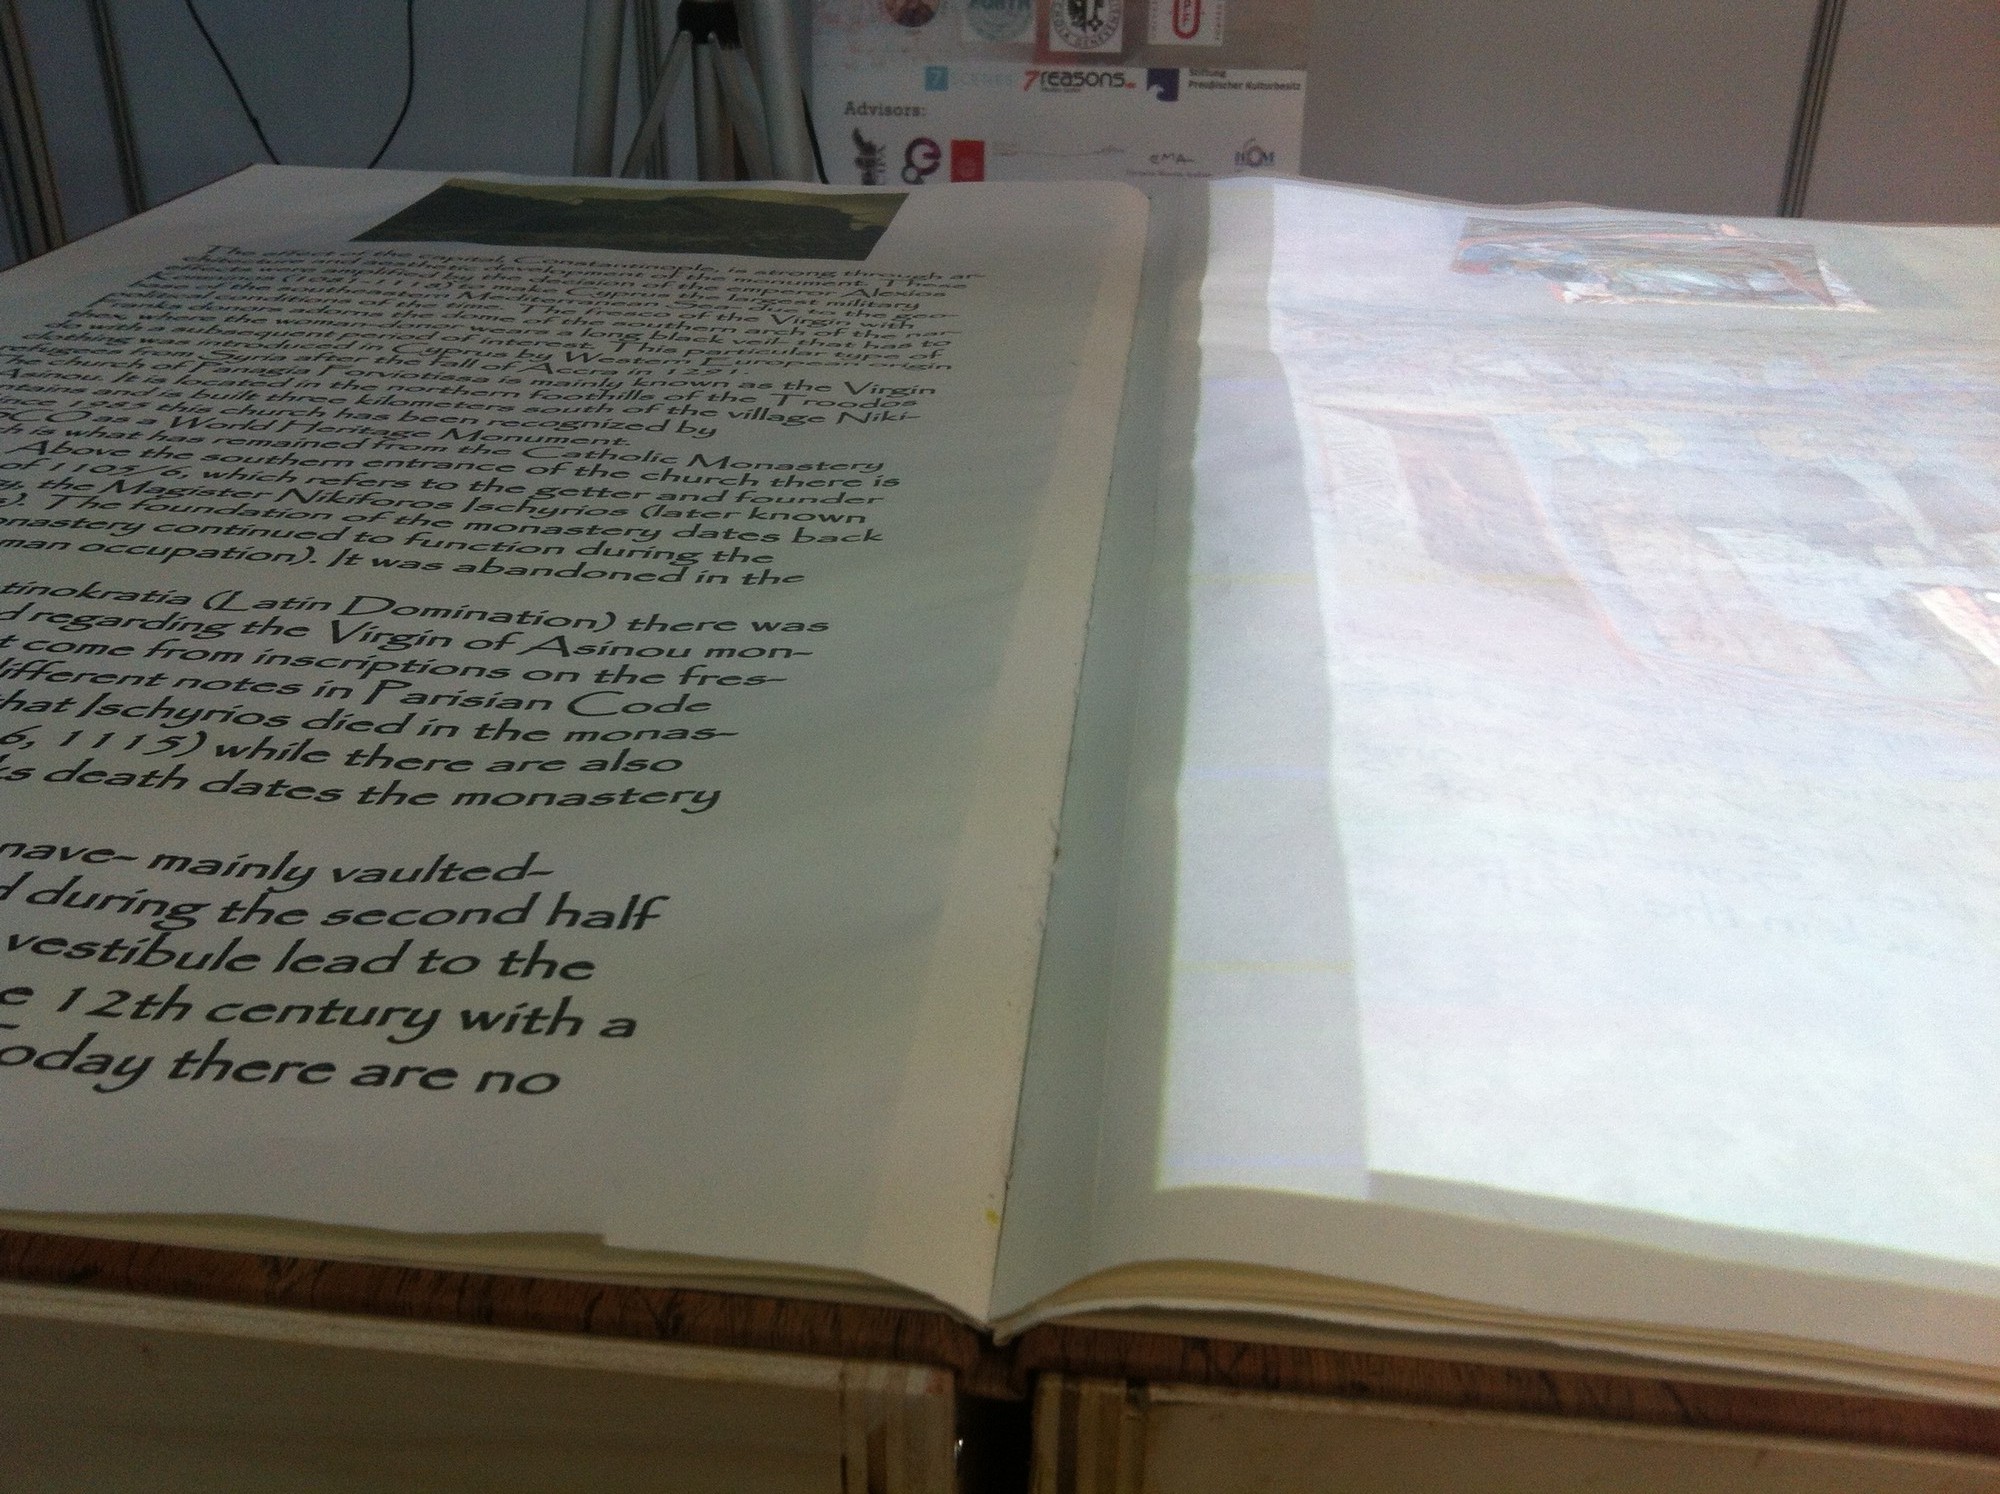 FORTH
7SCENES 7reasons Stiftung
Preußischer Kulturbesitz
Advisors:
The effect of the capital, Constantinople, is strong through ar-
chitectural and aesthetic development of the monument. These
effects were amplified by the decision of the emperor Alexios
(1081-1118) to make Cyprus the largest military
base of the southeastern Mediterranean Sea due to the geo-
political conditions of the time. The fresco of the Virgin with
Franks donors adorns the dome of the southern arch of the nar-
thex, where the woman-donor wears a long black veil that has to
do with a subsequent period of interest. This particular type of
clothing was introduced in Cyprus by Western European origin
refugees from Syria after the fall of Accra in 1291.
The church of Panagia Forviotissa is mainly known as the Virgin
Asinou. It is located in the northern foothills of the Troodos
ntains and is built three kilometers south of the village Niki-
ince 1985 this church has been recognized by
CO as a World Heritage Monument.
ch is what has remained from the Catholic Monastery
Above the southern entrance of the church there is
of 1105/6, which refers to the getter and founder
y, the Magister Nikiforos Ischyrios (later known
s). The foundation of the monastery dates back
onastery continued to function during the
man occupation). It was abandoned in the
tinokratia (Latin Domination) there was
d regarding the Virgin of Asinou mon-
t come from inscriptions on the fres-
ifferent notes in Parisian Code
that Ischyrios died in the monas-
6, 1115) while there are also
ks death dates the monastery
nave- mainly vaulted-
d during the second half
vestibule lead to the
e 12th century with a
Today there are no